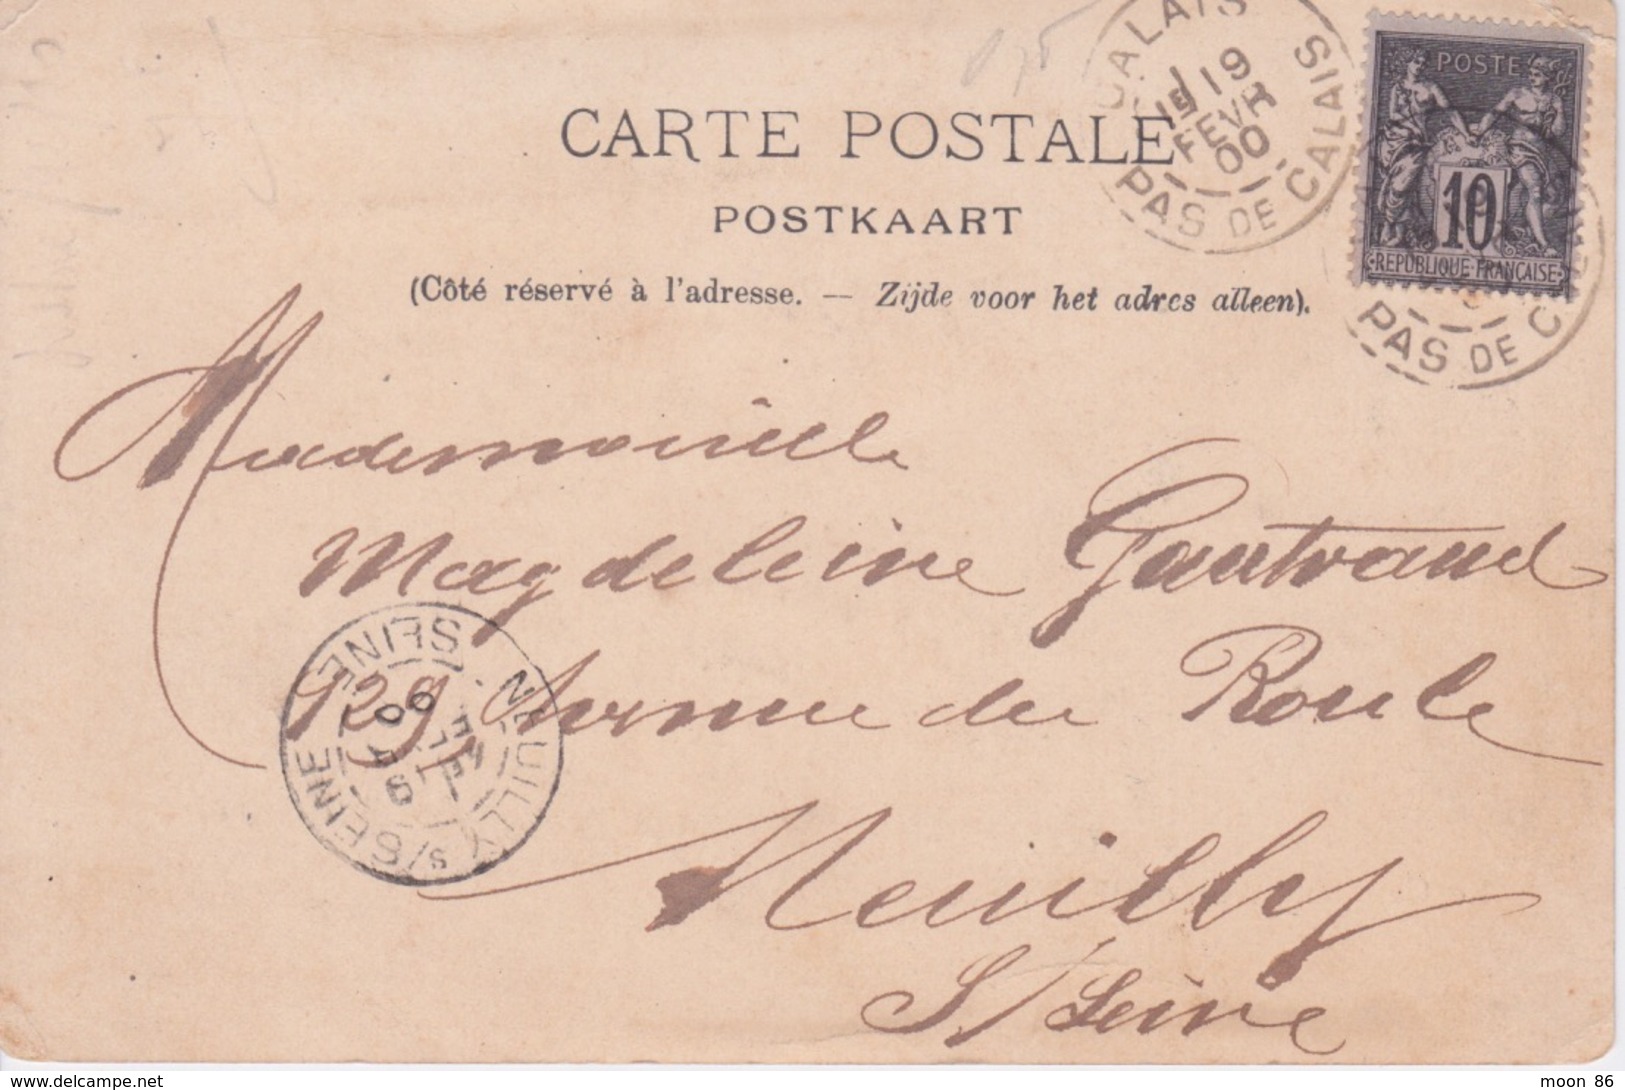 CARTE POSTALE
POSTKAART
(Côté réservé à l'adresse. — Zijde voor het adres alleen).
CALAIS CALAIS
19
FEVR
00
PAS DE CALAIS
POSTE
10
REPUBLIQUE FRANÇAISE
PAS DE
Mademoiselle
Magdeleine Gautrand
129, Avenue du Roule
Neuilly
S/ Seine
NEUILLY S/SEINE
SEINE
19
00
moon 86